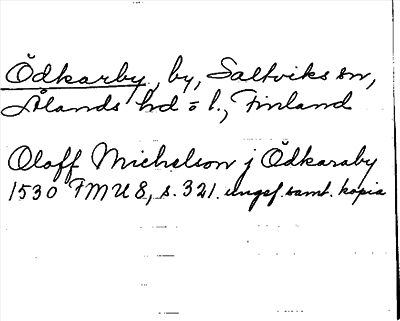 Ödkarby, by, Saltviks sn,
Ålands hd o l., Finland
Oloff Michelson j Ödkaraby
1530 FMU 8, s. 321. ungef. samt. kopia